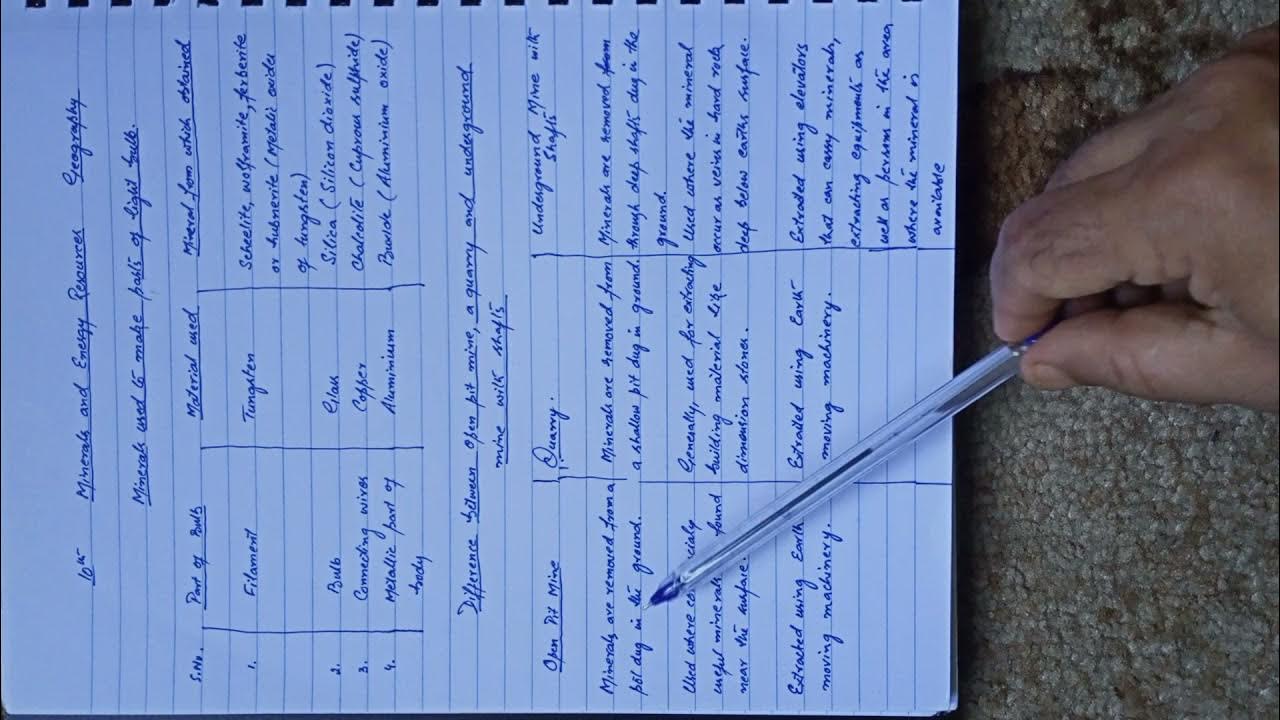 10th Minerals and Energy Resources Geography
Minerals used to make parts of light bulb.
S.No. Part of Bulb Material used Mineral from which obtained
1. Filament Tungsten Scheelite, wolframite, ferberite
or hubnerite (Metalic oxides
of tungsten)
2. Bulb Glass Silica (Silicon dioxide)
3. Connecting wires Copper Chalcolite (Cuprous sulphide)
4. Metallic part of Aluminium Bauxide (Aluminium oxide)
body
Difference between Open pit mine, a quarry and underground
mine with shafts
Open Pit Mine Quarry. Underground Mine with
Shafts
Minerals are removed from a Minerals are removed from Minerals are removed from
pit dug in the ground. a shallow pit dug in ground. through deep shafts dug in the
ground.
Used where Generally used for extracting Used where the mineral
useful minerals found building material like occur as veins in hard rock,
near the surface. dimension stones. deep below earths surface.
Extracted using Earth Extracted using Earth Extracted using elevators
moving machinery. moving machinery. that can carry minerals,
extracting equipments as
well as persons in the area
where the mineral is
available